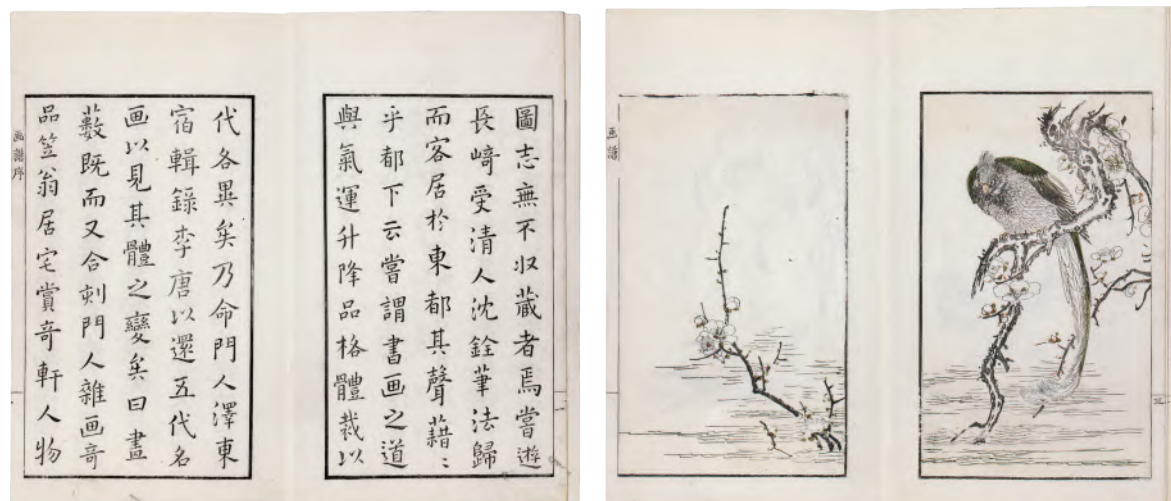 圖志無不収蔵者焉嘗遊
長﨑受清人沈銓筆法歸
而客居於東都其聲藉〻
乎都下云嘗謂書画之道
與氣運升降品格體裁以
代各異矣乃命門人澤東
宿輯錄李唐以還五代名
画以見其體之變矣曰畫
藪既而又合刻門人雜画奇
品笠翁居宅賞奇軒人物
画譜序
画譜